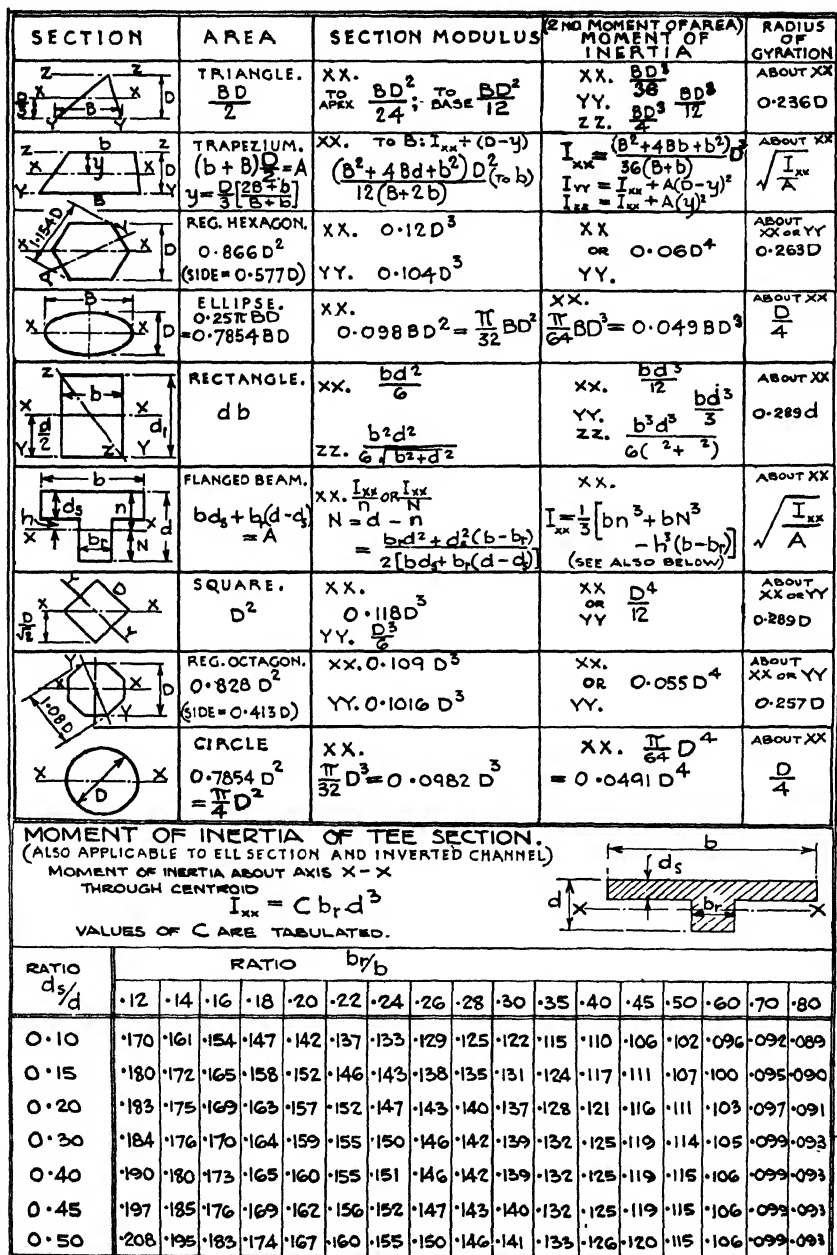 SECTION AREA SECTION MODULUS (2ND MOMENT OF AREA) MOMENT OF INERTIA RADIUS OF GYRATION
Z Z X X D D/3 B Y Y
TRIANGLE.
BD/2
XX.
TO APEX BD²/24; TO BASE BD²/12
XX. BD³/36
YY. BD³/12
ZZ. BD³/4
ABOUT XX
0·236D
Z b Z X y X D Y B Y
TRAPEZIUM.
(b + B)D/2 = A
y = D/3 [2B+b / B+b]
XX. TO B: Ixx ÷ (D-y)
(B² + 4Bd + b²) D² / 12(B+2b) (TO b)
Ixx = (B² + 4Bb + b²) / 36(B+b) D³
IYY = Ixx + A(D-y)²
Izz = Ixx + A(y)²
ABOUT XX
√Ixx/A
1·154D X X D
REG. HEXAGON.
0·866D²
(SIDE = 0·577D)
XX. 0·12D³
YY. 0·104D³
XX
OR 0·06D⁴
YY.
ABOUT XX OR YY
0·263D
B X X D
ELLIPSE.
0·25π BD
= 0·7854 BD
XX.
0·098 BD² = π/32 BD²
XX.
π/64 BD³ = 0·049 BD³
ABOUT XX
D/4
Z b X X d/2 d, Y Z Y
RECTANGLE.
db
XX. bd²/6
ZZ. b²d² / 6√b²+d²
XX. bd³/12
YY. bd³/3
ZZ. b³d³ / 6( ²+ ²)
ABOUT XX
0·289d
b ds n h X X d br N
FLANGED BEAM.
bds + br(d-ds) = A
XX. Ixx/n OR Ixx/N
N = d - n
= brd² + ds²(b-br) / 2[bds + br(d-ds)]
XX.
Ixx = 1/3 [bn³ + bN³
- h³(b-br)]
(SEE ALSO BELOW)
ABOUT XX
√Ixx/A
Y D X X Y
SQUARE.
D²
XX.
0·118D³
YY. D³/6
XX
OR D⁴/12
YY
ABOUT XX OR YY
0·289D
Y X X D Y 1·08D
REG. OCTAGON.
0·828 D²
(SIDE = 0·413D)
XX. 0·109 D³
YY. 0·1016 D³
XX.
OR 0·055D⁴
YY.
ABOUT XX OR YY
0·257D
X X D
CIRCLE
0·7854 D²
= π/4 D²
XX.
π/32 D³ = 0·0982 D³
XX. π/64 D⁴
= 0·0491 D⁴
ABOUT XX
D/4
MOMENT OF INERTIA OF TEE SECTION.
(ALSO APPLICABLE TO ELL SECTION AND INVERTED CHANNEL)
MOMENT OF INERTIA ABOUT AXIS X-X
THROUGH CENTROID
Ixx = C br d³
VALUES OF C ARE TABULATED.
b ds d X br X
RATIO ds/d RATIO br/b
·12 ·14 ·16 ·18 ·20 ·22 ·24 ·26 ·28 ·30 ·35 ·40 ·45 ·50 ·60 ·70 ·80
0·10 ·170 ·161 ·154 ·147 ·142 ·137 ·133 ·129 ·125 ·122 ·115 ·110 ·106 ·102 ·096 ·092 ·089
0·15 ·180 ·172 ·165 ·158 ·152 ·146 ·143 ·138 ·135 ·131 ·124 ·117 ·111 ·107 ·100 ·095 ·090
0·20 ·183 ·175 ·169 ·163 ·157 ·152 ·147 ·143 ·140 ·137 ·128 ·121 ·116 ·111 ·103 ·097 ·091
0·30 ·184 ·176 ·170 ·164 ·159 ·155 ·150 ·146 ·142 ·139 ·132 ·125 ·119 ·114 ·105 ·099 ·093
0·40 ·190 ·180 ·173 ·165 ·160 ·155 ·151 ·146 ·142 ·139 ·132 ·125 ·119 ·115 ·106 ·099 ·093
0·45 ·197 ·185 ·176 ·169 ·162 ·156 ·152 ·147 ·143 ·140 ·132 ·125 ·119 ·115 ·106 ·099 ·093
0·50 ·208 ·195 ·183 ·174 ·167 ·160 ·155 ·150 ·146 ·141 ·133 ·126 ·120 ·115 ·106 ·099 ·093